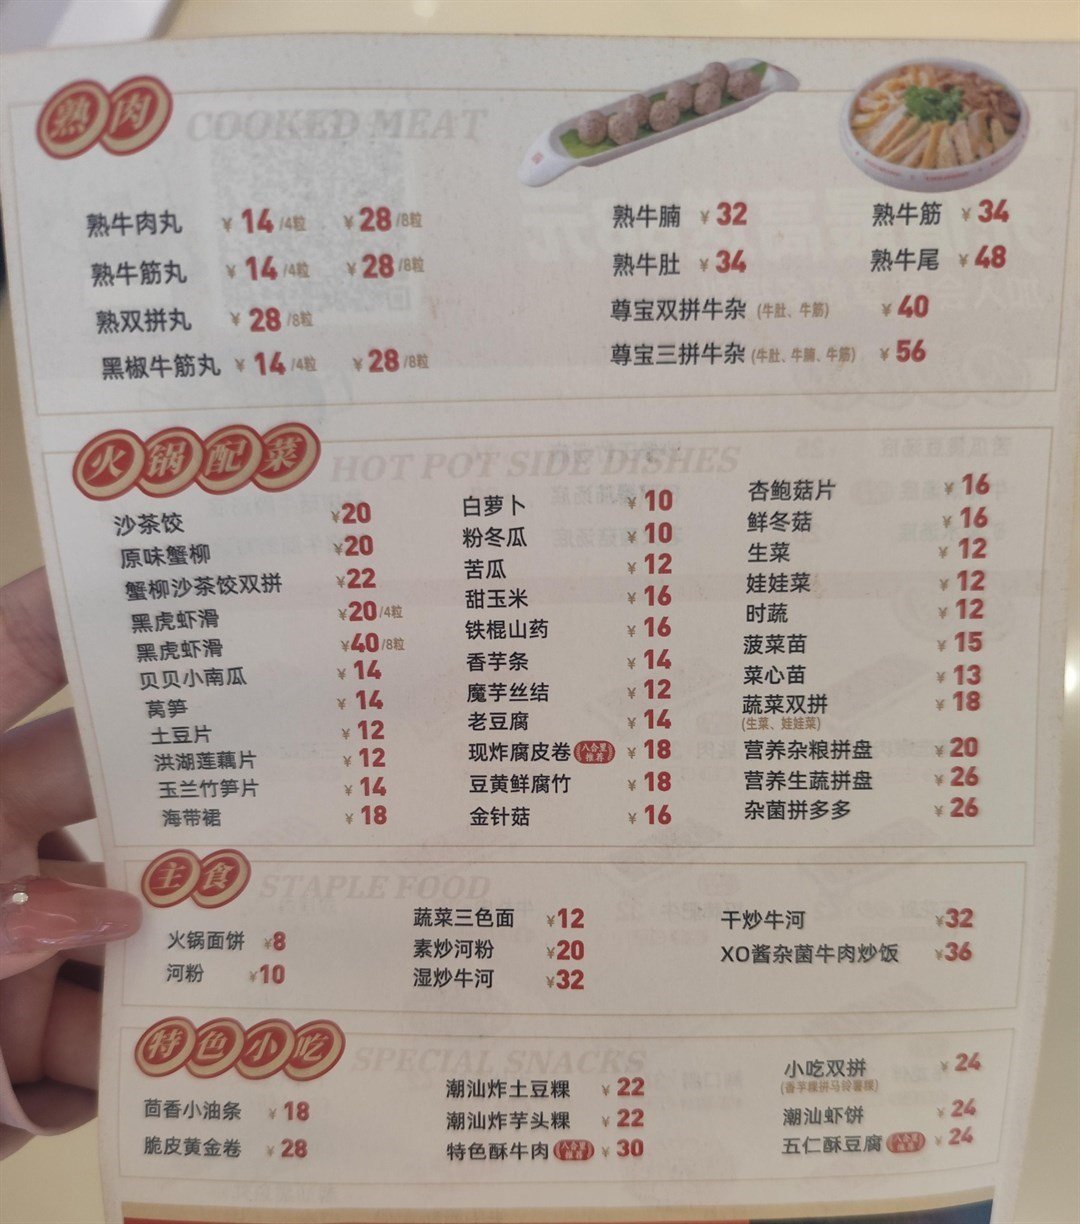 熟肉 COOKED MEAT
熟牛肉丸 ¥14/4粒 ¥28/8粒
熟牛筋丸 ¥14/4粒 ¥28/8粒
熟双拼丸 ¥28/8粒
黑椒牛筋丸 ¥14/4粒 ¥28/8粒
熟牛腩 ¥32
熟牛筋 ¥34
熟牛肚 ¥34
熟牛尾 ¥48
尊宝双拼牛杂(牛肚、牛筋) ¥40
尊宝三拼牛杂(牛肚、牛腩、牛筋) ¥56
火锅配菜 HOT POT SIDE DISHES
沙茶饺 ¥20
原味蟹柳 ¥20
蟹柳沙茶饺双拼 ¥22
黑虎虾滑 ¥20/4粒
黑虎虾滑 ¥40/8粒
贝贝小南瓜 ¥14
莴笋 ¥14
土豆片 ¥12
洪湖莲藕片 ¥12
玉兰竹笋片 ¥14
海带裙 ¥18
白萝卜 ¥10
粉冬瓜 ¥10
苦瓜 ¥12
甜玉米 ¥16
铁棍山药 ¥16
香芋条 ¥14
魔芋丝结 ¥12
老豆腐 ¥14
现炸腐皮卷 八合里推荐 ¥18
豆黄鲜腐竹 ¥18
金针菇 ¥16
杏鲍菇片 ¥16
鲜冬菇 ¥16
生菜 ¥12
娃娃菜 ¥12
时蔬 ¥12
菠菜苗 ¥15
菜心苗 ¥13
蔬菜双拼 ¥18
(生菜、娃娃菜)
营养杂粮拼盘 ¥20
营养生蔬拼盘 ¥26
杂菌拼多多 ¥26
主食 STAPLE FOOD
火锅面饼 ¥8
河粉 ¥10
蔬菜三色面 ¥12
素炒河粉 ¥20
湿炒牛河 ¥32
干炒牛河 ¥32
XO酱杂菌牛肉炒饭 ¥36
特色小吃 SPECIAL SNACKS
茴香小油条 ¥18
脆皮黄金卷 ¥28
潮汕炸土豆粿 ¥22
潮汕炸芋头粿 ¥22
特色酥牛肉 八合里推荐 ¥30
小吃双拼 ¥24
(香芋粿拼马铃薯粿)
潮汕虾饼 ¥24
五仁酥豆腐 八合里推荐 ¥24